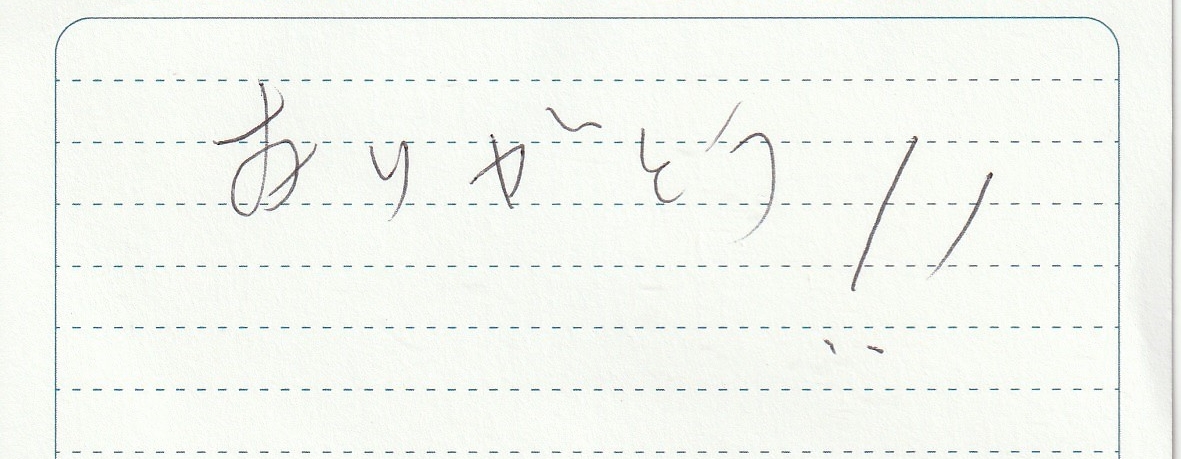 ありがとう!!